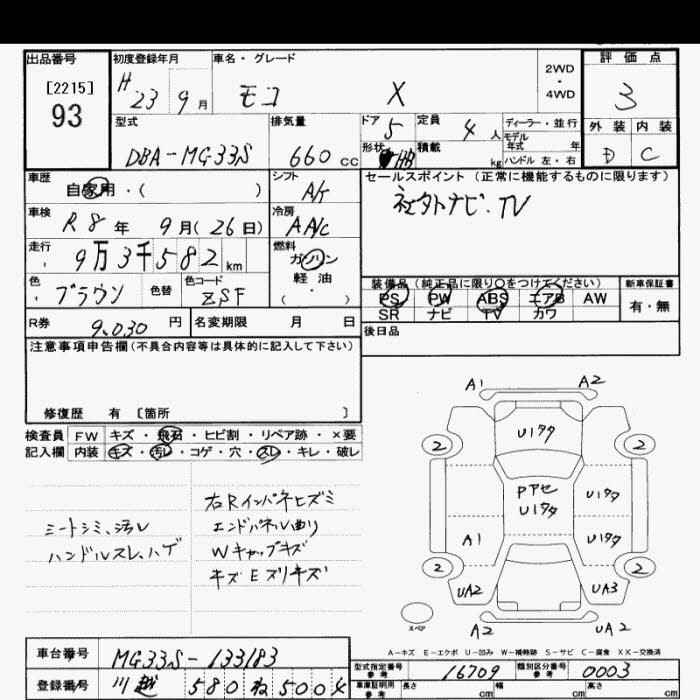 出品番号 初度登録年月 車名・グレード 2WD・4WD 評価点
[2215]
93
H 23 9月 モコ X 3
型式 排気量 ドア 5 定員 4人 ディーラー・並行 外装 内装
モデル年式 年
DBA-MG33S 660cc 形状 HB 積載 kg ハンドル 左・右 D C
車歴 シフト セールスポイント (正常に機能するものに限ります)
自家用・( ) A/t
社外ナビ.TV
車検 R8年 9月(26日) 冷房 AA/c
走行 9万3千582km 燃料 ガソリン
軽油
・( )
色 ブラウン 色替 色コード ZSF
装備品 (純正品に限り○をつけてください) 新車保証書
PS PW ABS エアB AW 有・無
SR ナビ TV カワ
R券 9,030円 名変期限 月 日 後日品
注意事項申告欄(不具合内容等は具体的に記入して下さい)
修復歴 有 [箇所 ]
検査員 FW キズ・飛石・ヒビ割・リペア跡・×要
記入欄 内装 キズ・汚レ・コゲ・穴・スレ・キレ・破レ
シートシミ、汚レ
ハンドルスレ、ハゲ
右Rインパネヒズミ
エンドパネル曲り
Wキャップキズ
キズEズリキズ
A1 A2
2 U1タタ 2
Pアセ
U1タタ U1タタ
A1 U1タタ
2 2
UA2 UA3
スペア A2 UA2
A-キズ E-エクボ U-凹み W-補修跡 S-サビ C-腐食 XX-交換済
車台番号 MG33S-133183
登録番号 川越 580 ね 5004
型式指定番号 参考 16709 類別区分番号 参考 0003
車庫証明用 参考 長さ cm 幅 cm 高さ cm